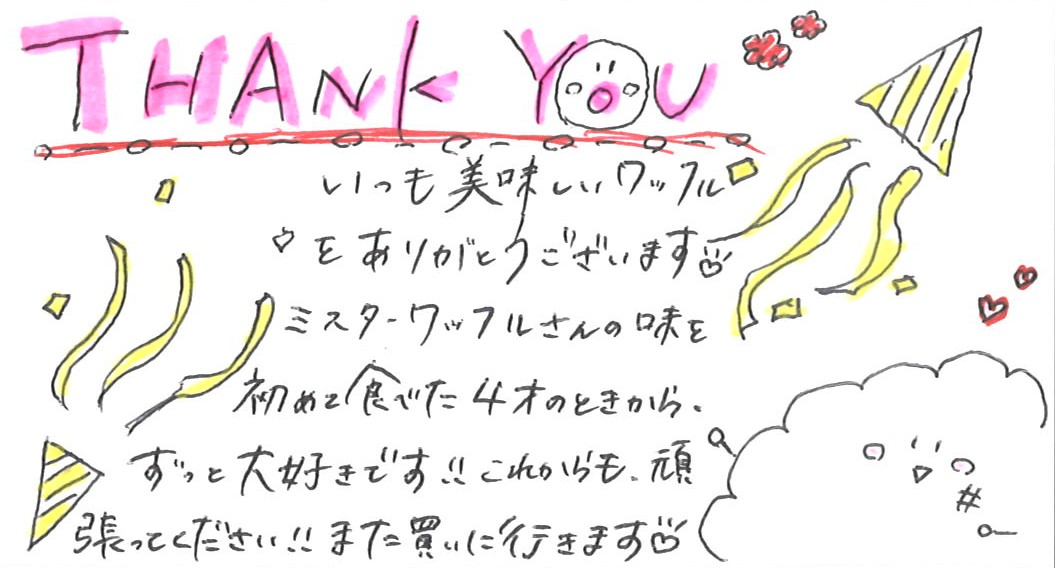 THANK YOU
いつも美味しいワッフル
♡をありがとうございます
ミスターワッフルさんの味を
初めて食べた4才のときから、
ずっと大好きです!!これからも、頑
張ってください!!また買いに行きます